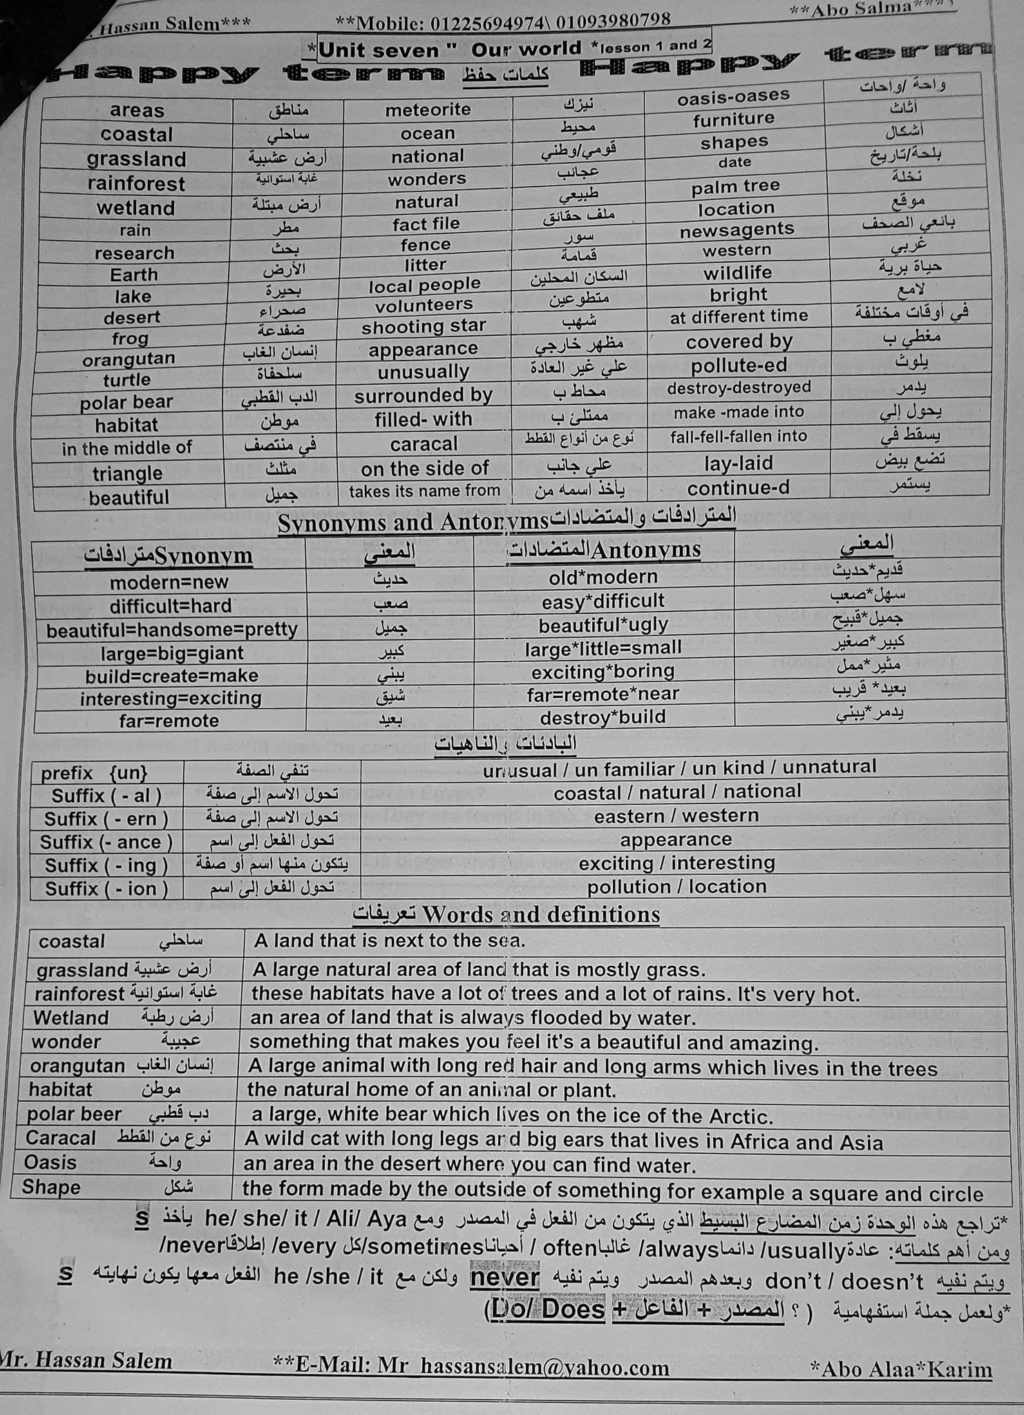 Hassan Salem*** **Mobile: 01225694974\ 01093980798 **Abo Salma****
*Unit seven " Our world *lesson 1 and 2
Happy term كلمات حفظ Happy term
areas مناطق meteorite نيزك oasis-oases واحة /واحات
coastal ساحلي ocean محيط furniture أثاث
grassland أرض عشبية national قومي/وطني shapes أشكال
rainforest غابة استوائية wonders عجائب date بلحة/تاريخ
wetland أرض مبتلة natural طبيعي palm tree نخلة
rain مطر fact file ملف حقائق location موقع
research بحث fence سور newsagents بائعي الصحف
Earth الأرض litter قمامة western غربي
lake بحيرة local people السكان المحلين wildlife حياة برية
desert صحراء volunteers متطوعين bright لامع
frog ضفدعة shooting star شهب at different time في أوقات مختلفة
orangutan إنسان الغاب appearance مظهر خارجي covered by مغطي ب
turtle سلحفاة unusually علي غير العادة pollute-ed يلوث
polar bear الدب القطبي surrounded by محاط ب destroy-destroyed يدمر
habitat موطن filled- with ممتلئ ب make -made into يحول إلي
in the middle of في منتصف caracal نوع من أنواع القطط fall-fell-fallen into يسقط في
triangle مثلث on the side of علي جانب lay-laid تضع بيض
beautiful جميل takes its name from يأخذ اسمه من continue-d يستمر
Synonyms and Antonyms المترادفات والمتضادات
مترادفات Synonym المعني المتضادات Antonyms المعني
modern=new حديث old*modern قديم*حديث
difficult=hard صعب easy*difficult سهل*صعب
beautiful=handsome=pretty جميل beautiful*ugly جميل*قبيح
large=big=giant كبير large*little=small كبير*صغير
build=create=make يبني exciting*boring مثير*ممل
interesting=exciting شيق far=remote*near بعيد* قريب
far=remote بعيد destroy*build يدمر*يبني
البادئات والناهيات
prefix {un} تنفي الصفة unusual / un familiar / un kind / unnatural
Suffix ( - al ) تحول الاسم إلي صفة coastal / natural / national
Suffix ( - ern ) تحول الاسم إلي صفة eastern / western
Suffix (- ance ) تحول الفعل إلي اسم appearance
Suffix ( - ing ) يتكون منها اسم أو صفة exciting / interesting
Suffix ( - ion ) تحول الفعل إلي اسم pollution / location
تعريفات Words and definitions
coastal ساحلي A land that is next to the sea.
grassland أرض عشبية A large natural area of land that is mostly grass.
rainforest غابة استوائية these habitats have a lot of trees and a lot of rains. It's very hot.
Wetland أرض رطبة an area of land that is always flooded by water.
wonder عجيبة something that makes you feel it's a beautiful and amazing.
orangutan إنسان الغاب A large animal with long red hair and long arms which lives in the trees
habitat موطن the natural home of an animal or plant.
polar beer دب قطبي a large, white bear which lives on the ice of the Arctic.
Caracal نوع من القطط A wild cat with long legs and big ears that lives in Africa and Asia
Oasis واحة an area in the desert where you can find water.
Shape شكل the form made by the outside of something for example a square and circle
*تراجع هذه الوحدة زمن المضارع البسيط الذي يتكون من الفعل في المصدر ومع he/ she/ it / Ali/ Aya يأخذ s
ومن أهم كلماته: عادة usually/ دائما always/ غالبا often / أحيانا sometimes/ كل every/ إطلاقا never/
ويتم نفيه don't / doesn't وبعدهم المصدر ويتم نفيه never ولكن مع he /she / it الفعل معها يكون نهايته s
*ولعمل جملة استفهامية ( ؟ المصدر + الفاعل + Do/ Does)
Mr. Hassan Salem **E-Mail: Mr_hassansalem@yahoo.com *Abo Alaa*Karim